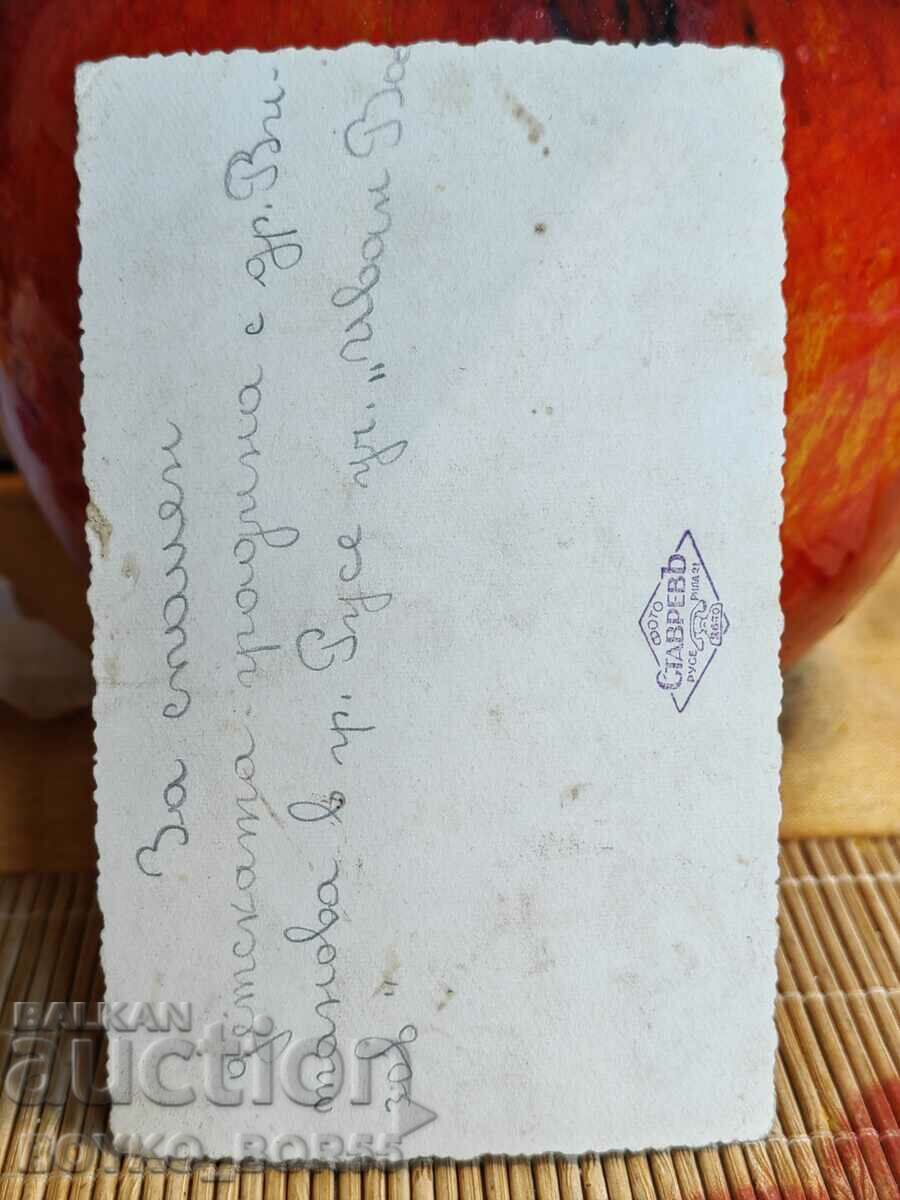 За спомен
детската градина с др. Ви-
танова в гр. Русе уч. „Иван Ва
зов"
ФОТО
СТАВРЕВЪ
РУСЕ РИЛА 21
BALKAN
auction
BOYKO_BOR55